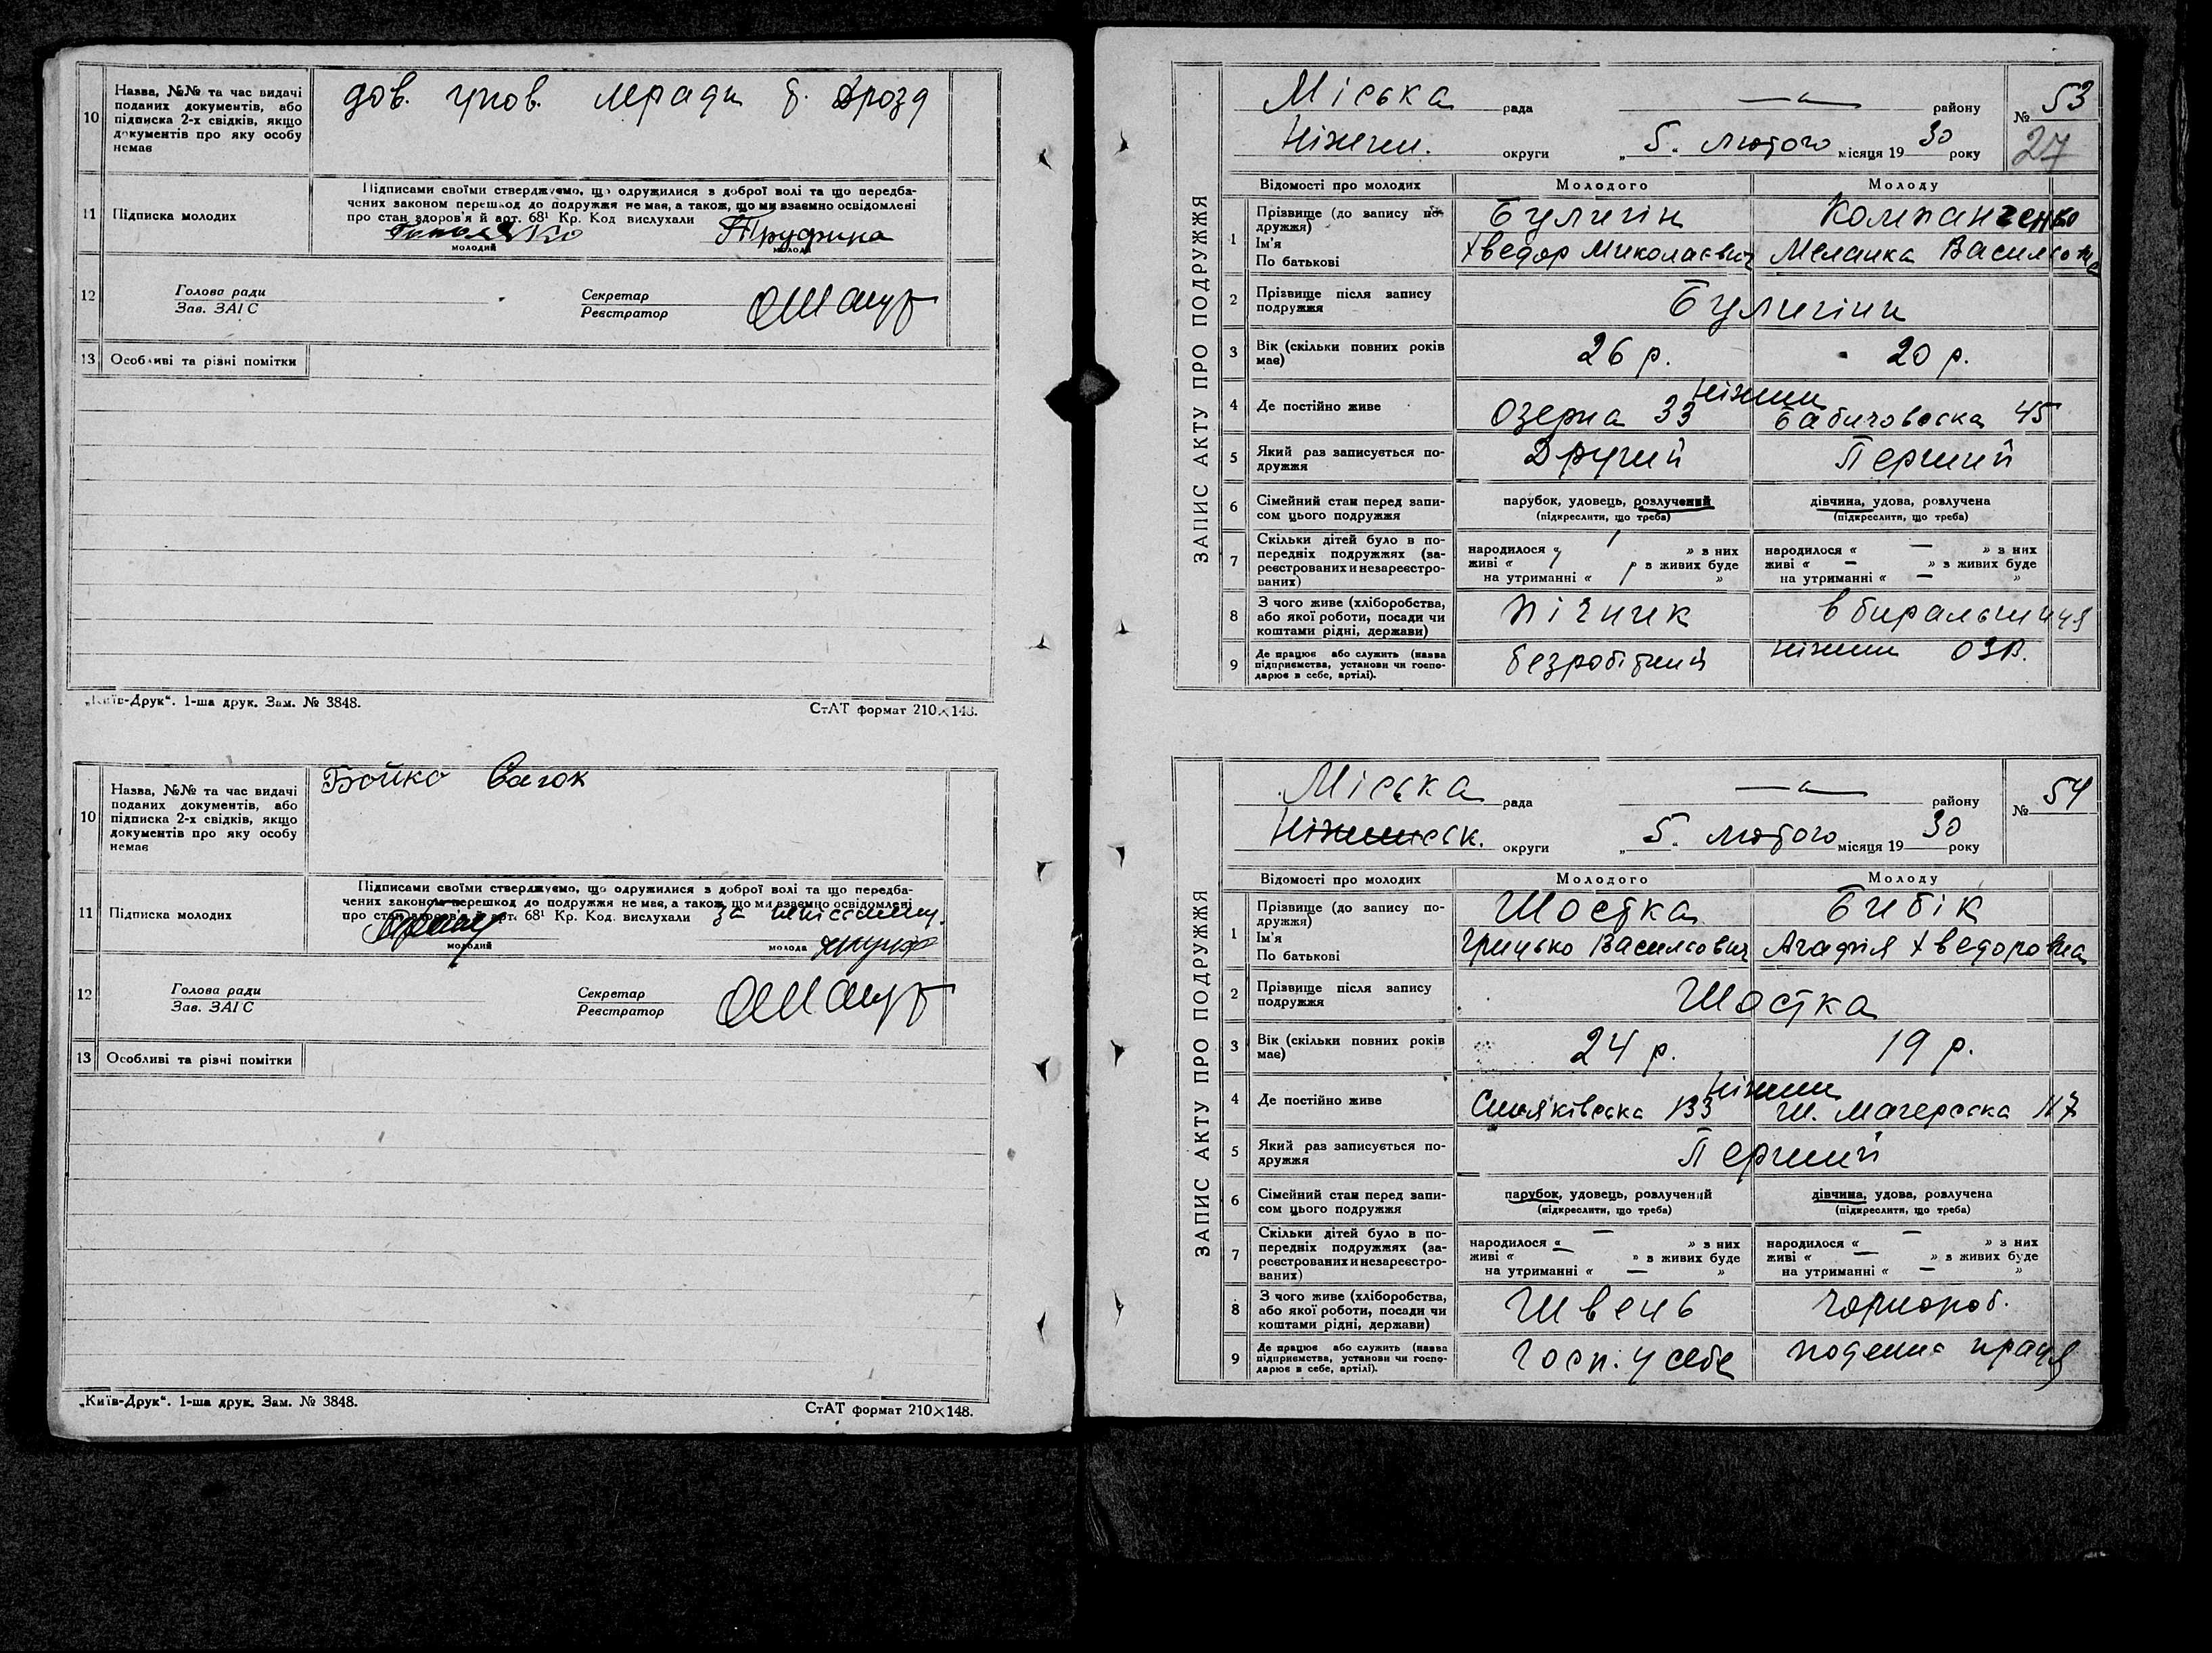 10
Назва, №№ та час видачі
поданих документів, або
підписка 2-х свідків, якщо
документів про яку особу
немає
дов. упов. мради б. Дрозд
11
Підписка молодих
Підписами своїми стверджуємо, що одружилися з доброї волі та що передба-
чених законом перешкод до подружжя не має, а також, що ми взаємно освідомлені
про стан здоров'я й арт. 68¹ Кр. Код вислухали
Труфина
молодий
молода
12
Голова ради
Зав. ЗАГС
Секретар
Реєстратор
13
Особливі та різні помітки
„Київ-Друк“. 1-ша друк. Зам. № 3848.
СтАТ формат 210×148.
10
Назва, №№ та час видачі
поданих документів, або
підписка 2-х свідків, якщо
документів про яку особу
немає
Бойко Сагок
11
Підписка молодих
Підписами своїми стверджуємо, що одружилися з доброї волі та що передба-
чених законом перешкод до подружжя не має, а також, що ми взаємно освідомлені
про стан здоров'я й арт. 68¹ Кр. Код. вислухали
за
молодий
молода
12
Голова ради
Зав. ЗАГС
Секретар
Реєстратор
13
Особливі та різні помітки
„Київ-Друк“. 1-ша друк. Зам. № 3848.
СтАТ формат 210×148.
ЗАПИС АКТУ ПРО ПОДРУЖЖЯ
Міська рада району
№ 53
Ніжин. округи „5“ лютого місяця 1930 року
27
Відомості про молодих
Молодого
Молоду
1
Прізвище (до запису по-
дружжя)
Ім'я
По батькові
Булигін
Компанченко
Хведор Миколаєвич
Меланка Василівна
2
Прізвище після запису
подружжя
Булигіни
3
Вік (скільки повних років
має)
26 р.
20 р.
4
Де постійно живе
Ніжин
Озерна 33
Бабичовська 45
5
Який раз записується по-
дружжя
Другий
Перший
6
Сімейний стан перед запи-
сом цього подружжя
парубок, удовець, розлучений
(підкреслити, що треба)
дівчина, удова, розлучена
(підкреслити, що треба)
7
Скільки дітей було в по-
передніх подружжях (за-
реєстрованих и незареєстро-
ваних)
народилося « 1 » з них
живі « 1 » з живих буде
на утриманні « 1 »
народилося « — » з них
живі « — » з живих буде
на утриманні « — »
8
З чого живе (хліборобства,
або якої роботи, посади чи
коштами рідні, держави)
пічник
вбиральниця
9
Де працює або служить (назва
підприємства, установи чи госпо-
дарює в себе, артілі).
безробітний
Ніжин ОЗВ.
ЗАПИС АКТУ ПРО ПОДРУЖЖЯ
Міська рада району
№ 54
Ніжинськ. округи „5. лютого місяця 1930 року
Відомості про молодих
Молодого
Молоду
1
Прізвище (до запису по-
дружжя)
Ім'я
По батькові
Шостка
Бибік
Грицько Василєович
Агафія Хведоровна
2
Прізвище після запису
подружжя
Шостка
3
Вік (скільки повних років
має)
24 р.
19 р.
4
Де постійно живе
Ніжин
Синяківська 133
Ш. Магерська 117
5
Який раз записується по-
дружжя
Перший
6
Сімейний стан перед запи-
сом цього подружжя
парубок, удовець, розлучений
(підкреслити, що треба)
дівчина, удова, розлучена
(підкреслити, що треба)
7
Скільки дітей було в по-
передніх подружжях (за-
реєстрованих и незареєстро-
ваних)
народилося « — » з них
живі « — » з живих буде
на утриманні « — »
народилося « — » з них
живі « — » з живих буде
на утриманні « — »
8
З чого живе (хліборобства,
або якої роботи, посади чи
коштами рідні, держави)
Швець
Чорнороб.
9
Де працює або служить (назва
підприємства, установи чи госпо-
дарює в себе, артілі).
Госп. у себе
поденна праця